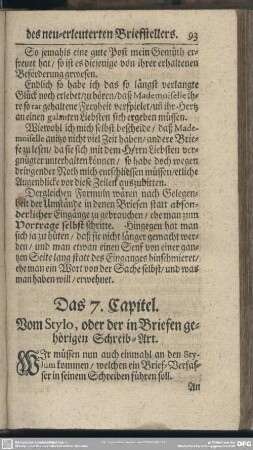 des neu-erleuterten Briefstellers. 93
So jemahls eine gute Post mein Gemüth er-
freuet hat / so ist es diejenige von ihrer erhaltenen
Beförderung gewesen.
Endlich so habe ich das so längst verlangte
Glück noch erlebet / zu hören / daß Mademoiselle ih-
re so rar gehaltene Freyheit verspielet / uñ ihr Hertz
an einen galanten Liebsten sich ergeben müssen.
Wiewohl ich mich selbst bescheide / daß Made-
moiselle anitzo nicht viel Zeit haben / andere Brie-
fe zu lesen / da sie sich mit dem Herrn Liebsten ver-
gnügter unterhalten können / so habe doch wegen
dringender Noth mich entschliessen müssen / etliche
Augenblicke vor diese Zeilen auszubitten.
Dergleichen Formuln wären nach Gelegen-
heit der Umstände in denen Briefen statt abson-
derlicher Eingänge zu gebrauchen / ehe man zum
Vortrage selbst schritte. Hingegen hat man
sich ja zu hüten / daß sie nicht länger gemacht wer-
den / und man etwan einen Senf von einer gan-
tzen Seite lang statt des Einganges hinschmieret /
ehe man ein Wort von der Sache selbst / und was
man haben will / erwehnet.
Das 7. Capitel.
Vom Stylo, oder der in Briefen ge-
hörigen Schreib-Art.
WIr müssen nun auch einmahl an den Sty-
lum kommen / welchen ein Brief-Verfas-
ser in seinem Schreiben führen soll.
An